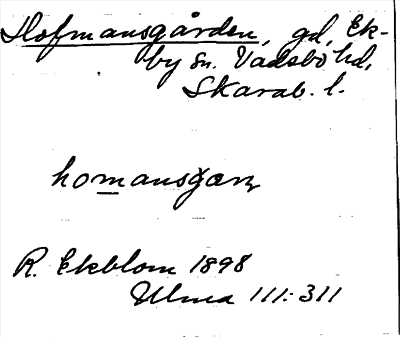 Hofmansgården, gd, Ek-
by sn. Vadsbo hd,
Skarab. l.
homansgærn
R. Ekblom 1898
Ulma 111:311